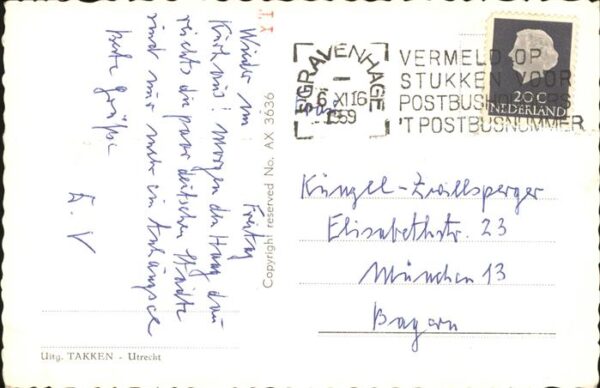 Freitag
Wieder im
Morgen Den Haag
die paar deutschen Städte
sind nur mehr ein Anhängsel
beste Grüße
E. V
Copyright reserved No. AX 3636
Uitg. TAKKEN - Utrecht
'S GRAVENHAGE
6 XI 16
1959
VERMELD OP
STUKKEN VOOR
POSTBUSHOUDERS
'T POSTBUSNUMMER
20 C
NEDERLAND
Elisabethstr. 23
München 13
Bayern